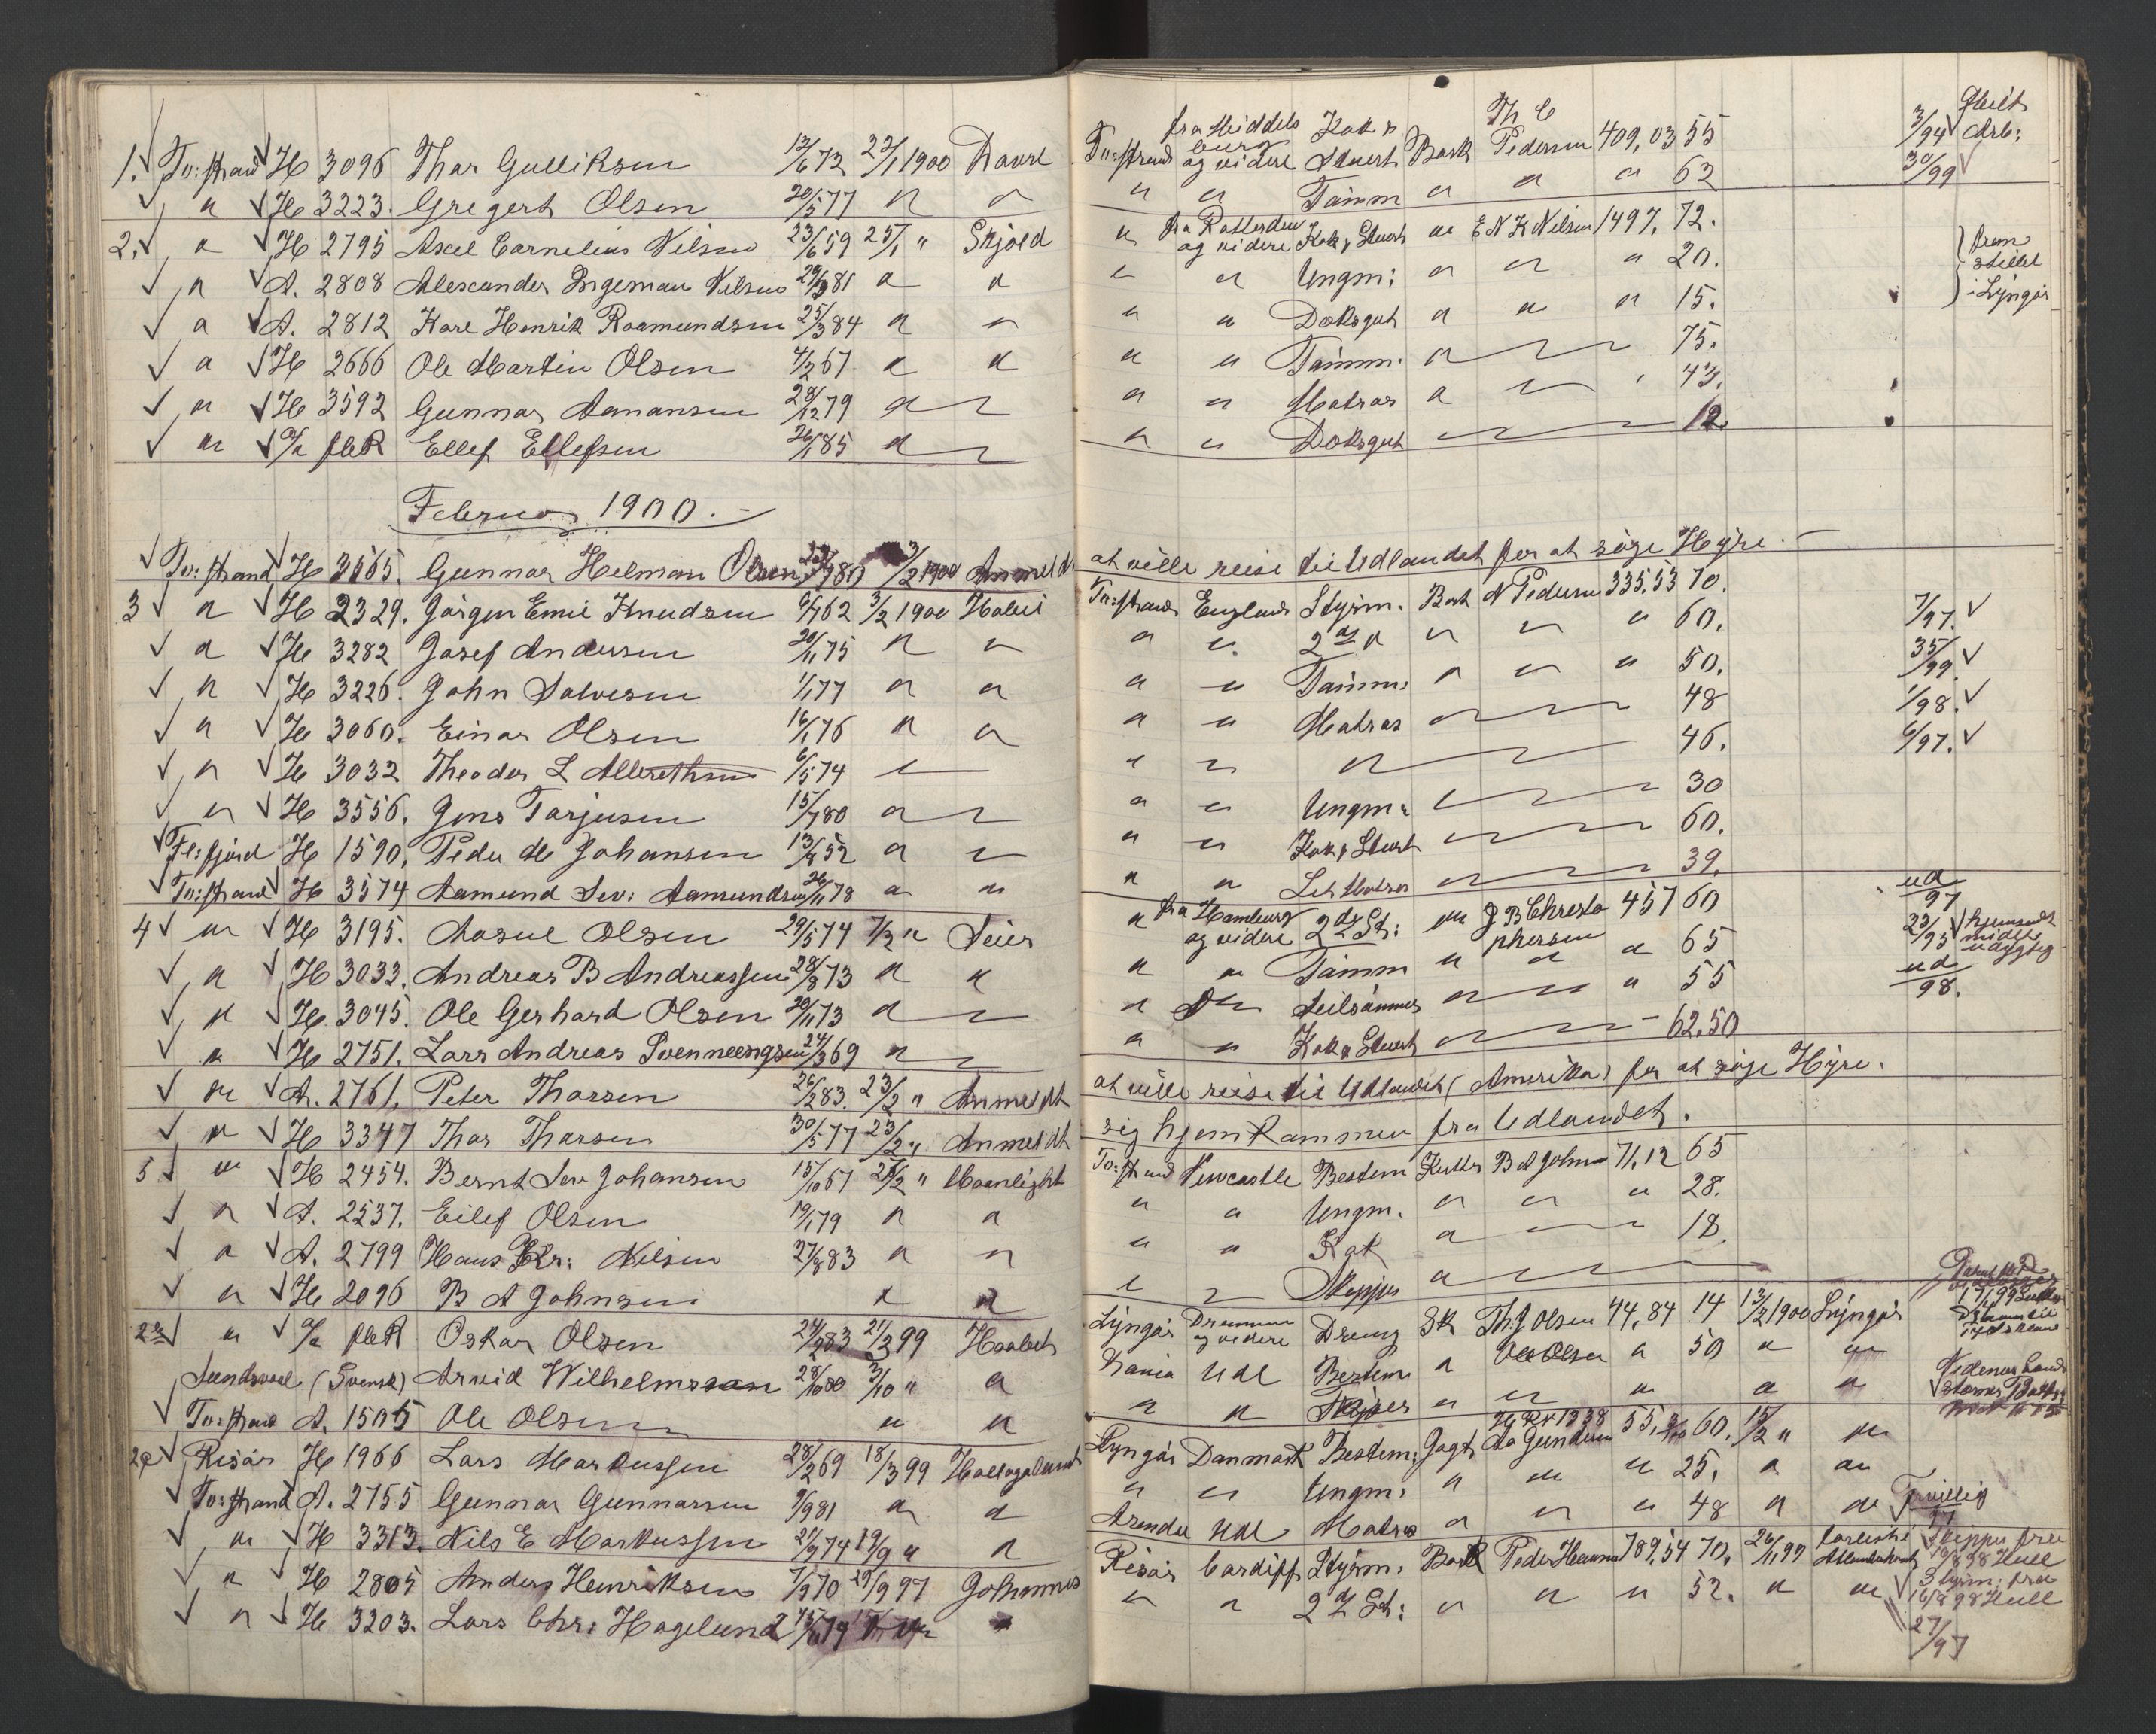 1. Tv:strand H 3096 Thor Gulliksen 12/6 72 22/1 1900 Dovre
" H 3223. Gregert Olsen 20/5 77 " "
2. " H 2795 Axel Cornelius Nilsen 23/6 59 25/1 " Skjold
" A. 2808 Alexander Ingeman Nilsen 29/3 81 " "
" A. 2812 Karl Henrik Roamundsen 25/3 84 " "
" H 2666 Ole Martin Olsen 4/2 67 " "
" H 3592 Gunnar Aanansen 28/12 79 " "
" fleR Ellef Ellefsen 26/1 85 " "
Februar 1900.
Tv:strand H 3565. Gunnar Helman Olsen 80 3/2 1900 Anmeldt
3 " H 2329. Jørgen Emil Knudsen 62 3/2 1900 Hebei
" H 3282 Josef Andersen 20/11 75 " "
" H 3226. John Salvesen 1/1 77 " "
" H 3060. Einar Olsen 16/1 76 " "
" H 3032 Theodor L Albrethsen 6/5 74 "
" H 3556. Jens Tarjusen 15/7 80 " "
Fl:fjord H 1590. Peder M Johansen 13/8 52 " "
Tv:strand H 3574 Aamund Sev: Aamundsen 26/11 78 " "
4 " H 3195. Aasul Olsen 29/5 74 7/2 " Seier
" H 3033. Andreas B Andreassen 28/8 73 " "
" H 3045. Ole Gerhard Olsen 20/11 73 " "
" H 2751. Lars Andreas Svenneengsen 24/3 69 " "
" A. 2761. Peter Thorsen 26/2 83. 23/2 " Anmeldt
" H 3347 Thor Thorsen 30/5 77 23/2 " Anmeldt
5 " H 2454. Bernt Sev Johansen 15/10 67 2 " Moonlight
" A. 2537. Eilef Olsen 19/1 79 " "
" A. 2799 Hans Kr: Nilsen 27/8 83 " "
" H 2096 B A Johnsen " "
" fleR Oskar Olsen 83 99 Haabet
Sundsvael (Svensk) Arvid Wilhelmsson 28/10 80 3/10 " "
Tv:strand A. 1505 Ole Olsen " "
Risør H 1966 Lars Markussen 28/2 69 18/3 99 Haalogaland
Tv:strand A. 2755 Gunnar Gunnarsen 9/9 81 " "
" H 3313. Nils E Markussen 74 19/9 " "
" H 2805 Anders Henriksen 7/9 70 29/9 97 Johannes
" H 3203. Lars Chr: Hagelund "
Tv:strand fra Middelsburg og videre Kok & Stuert Bark Th C Pedersen 409,03 55 3/94 Arb:
" " Tømm " " " 62 30/99
" fra Rotterdam og videre Kok & Stuert " E N K Nilsen 1497. 72.
" " Ungm: " " " 20. frem stillet i Lyngør
" " Doksgut " " " 15.
" " Tømm. " 75.
" " Matros " 43.
" " Doksgut 12.
at ville reise til Udlandet for at søge Hyre.
Tv:strand England Styrm. Bark N Pedersen 335,53 70.
" " 2den " " " " 60. 7/97.
" " Tømm: " " " 50. 35/99.
" " Matros 48 1/98.
" " " 46. 6/97.
" " Ungm: 30
" " Kok & Stuert 60.
" " Let Matros 39.
" fra Hamburg og videre 2den St: " J B Christophersen 457 60 ud 97
" " Tømm " " " 65 23/95 hjemsendt
" " Seilsømmer " 55 ud 98.
" " Kok & Stuert 62.50
at ville reise til Udlandet (Amerika) for at søge Hyre.
sig hjemkommen fra Udlandet.
Tv:strand Newcastle Bestem Kutter B A Johnsen 71,12 65
" " Ungm. " " " 28.
" " Kok " 18.
" " Skipper "
Lyngør Drammen og videre Dreng Sk Th J Olsen 44,84 14 13/2 1900 Lyngør
Hania Udl Bestem " Ole Olsen " 50 " "
" " Skipper " " " " "
Lyngør Danmark Bestem: Jagt 55, 60. 15/2 " "
" " Ungm: " " " 25. " "
Arendal Udl Matros " " " 48 " " Frivillig
Risør Cardiff Styrm: Bark Peder Hermansen 789,54 70. 26/11 97
" " 2d St: " " " 52. " " 27/97